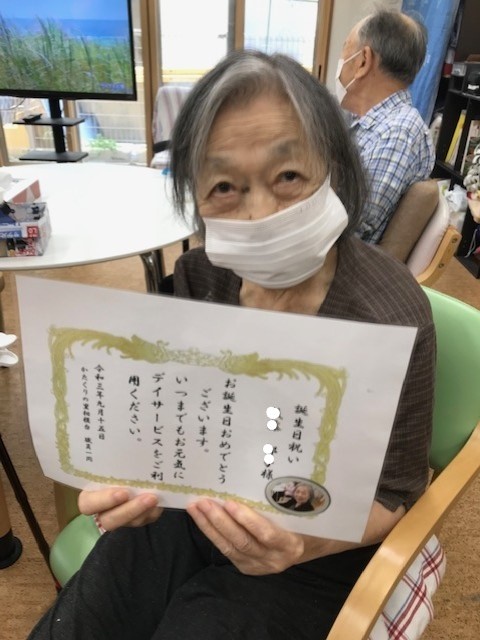 誕生日祝い
様
お誕生日おめでとう
ございます。
いつまでもお元気に
デイサービスをご利
用ください。
令和三年九月十五日
かたくりの里相模台 職員一同